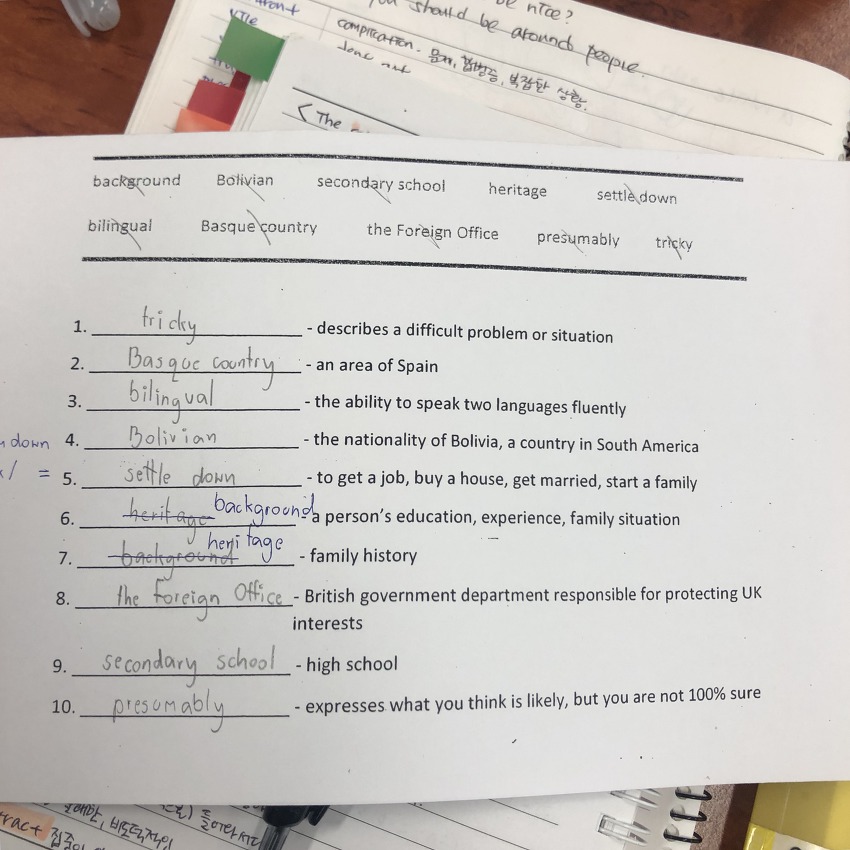 be nice?
should be around people.
complication. 문제, 합병증, 복잡한 상황.
<The
background Bolivian secondary school heritage settle down
bilingual Basque country the Foreign Office presumably tricky
1. tricky - describes a difficult problem or situation
2. Basque country - an area of Spain
3. bilingual - the ability to speak two languages fluently
down 4. Bolivian - the nationality of Bolivia, a country in South America
/ = 5. settle down - to get a job, buy a house, get married, start a family
6. heritage background - a person's education, experience, family situation
7. background heritage - family history
8. the Foreign Office - British government department responsible for protecting UK
interests
9. secondary school - high school
10. presumably - expresses what you think is likely, but you are not 100% sure